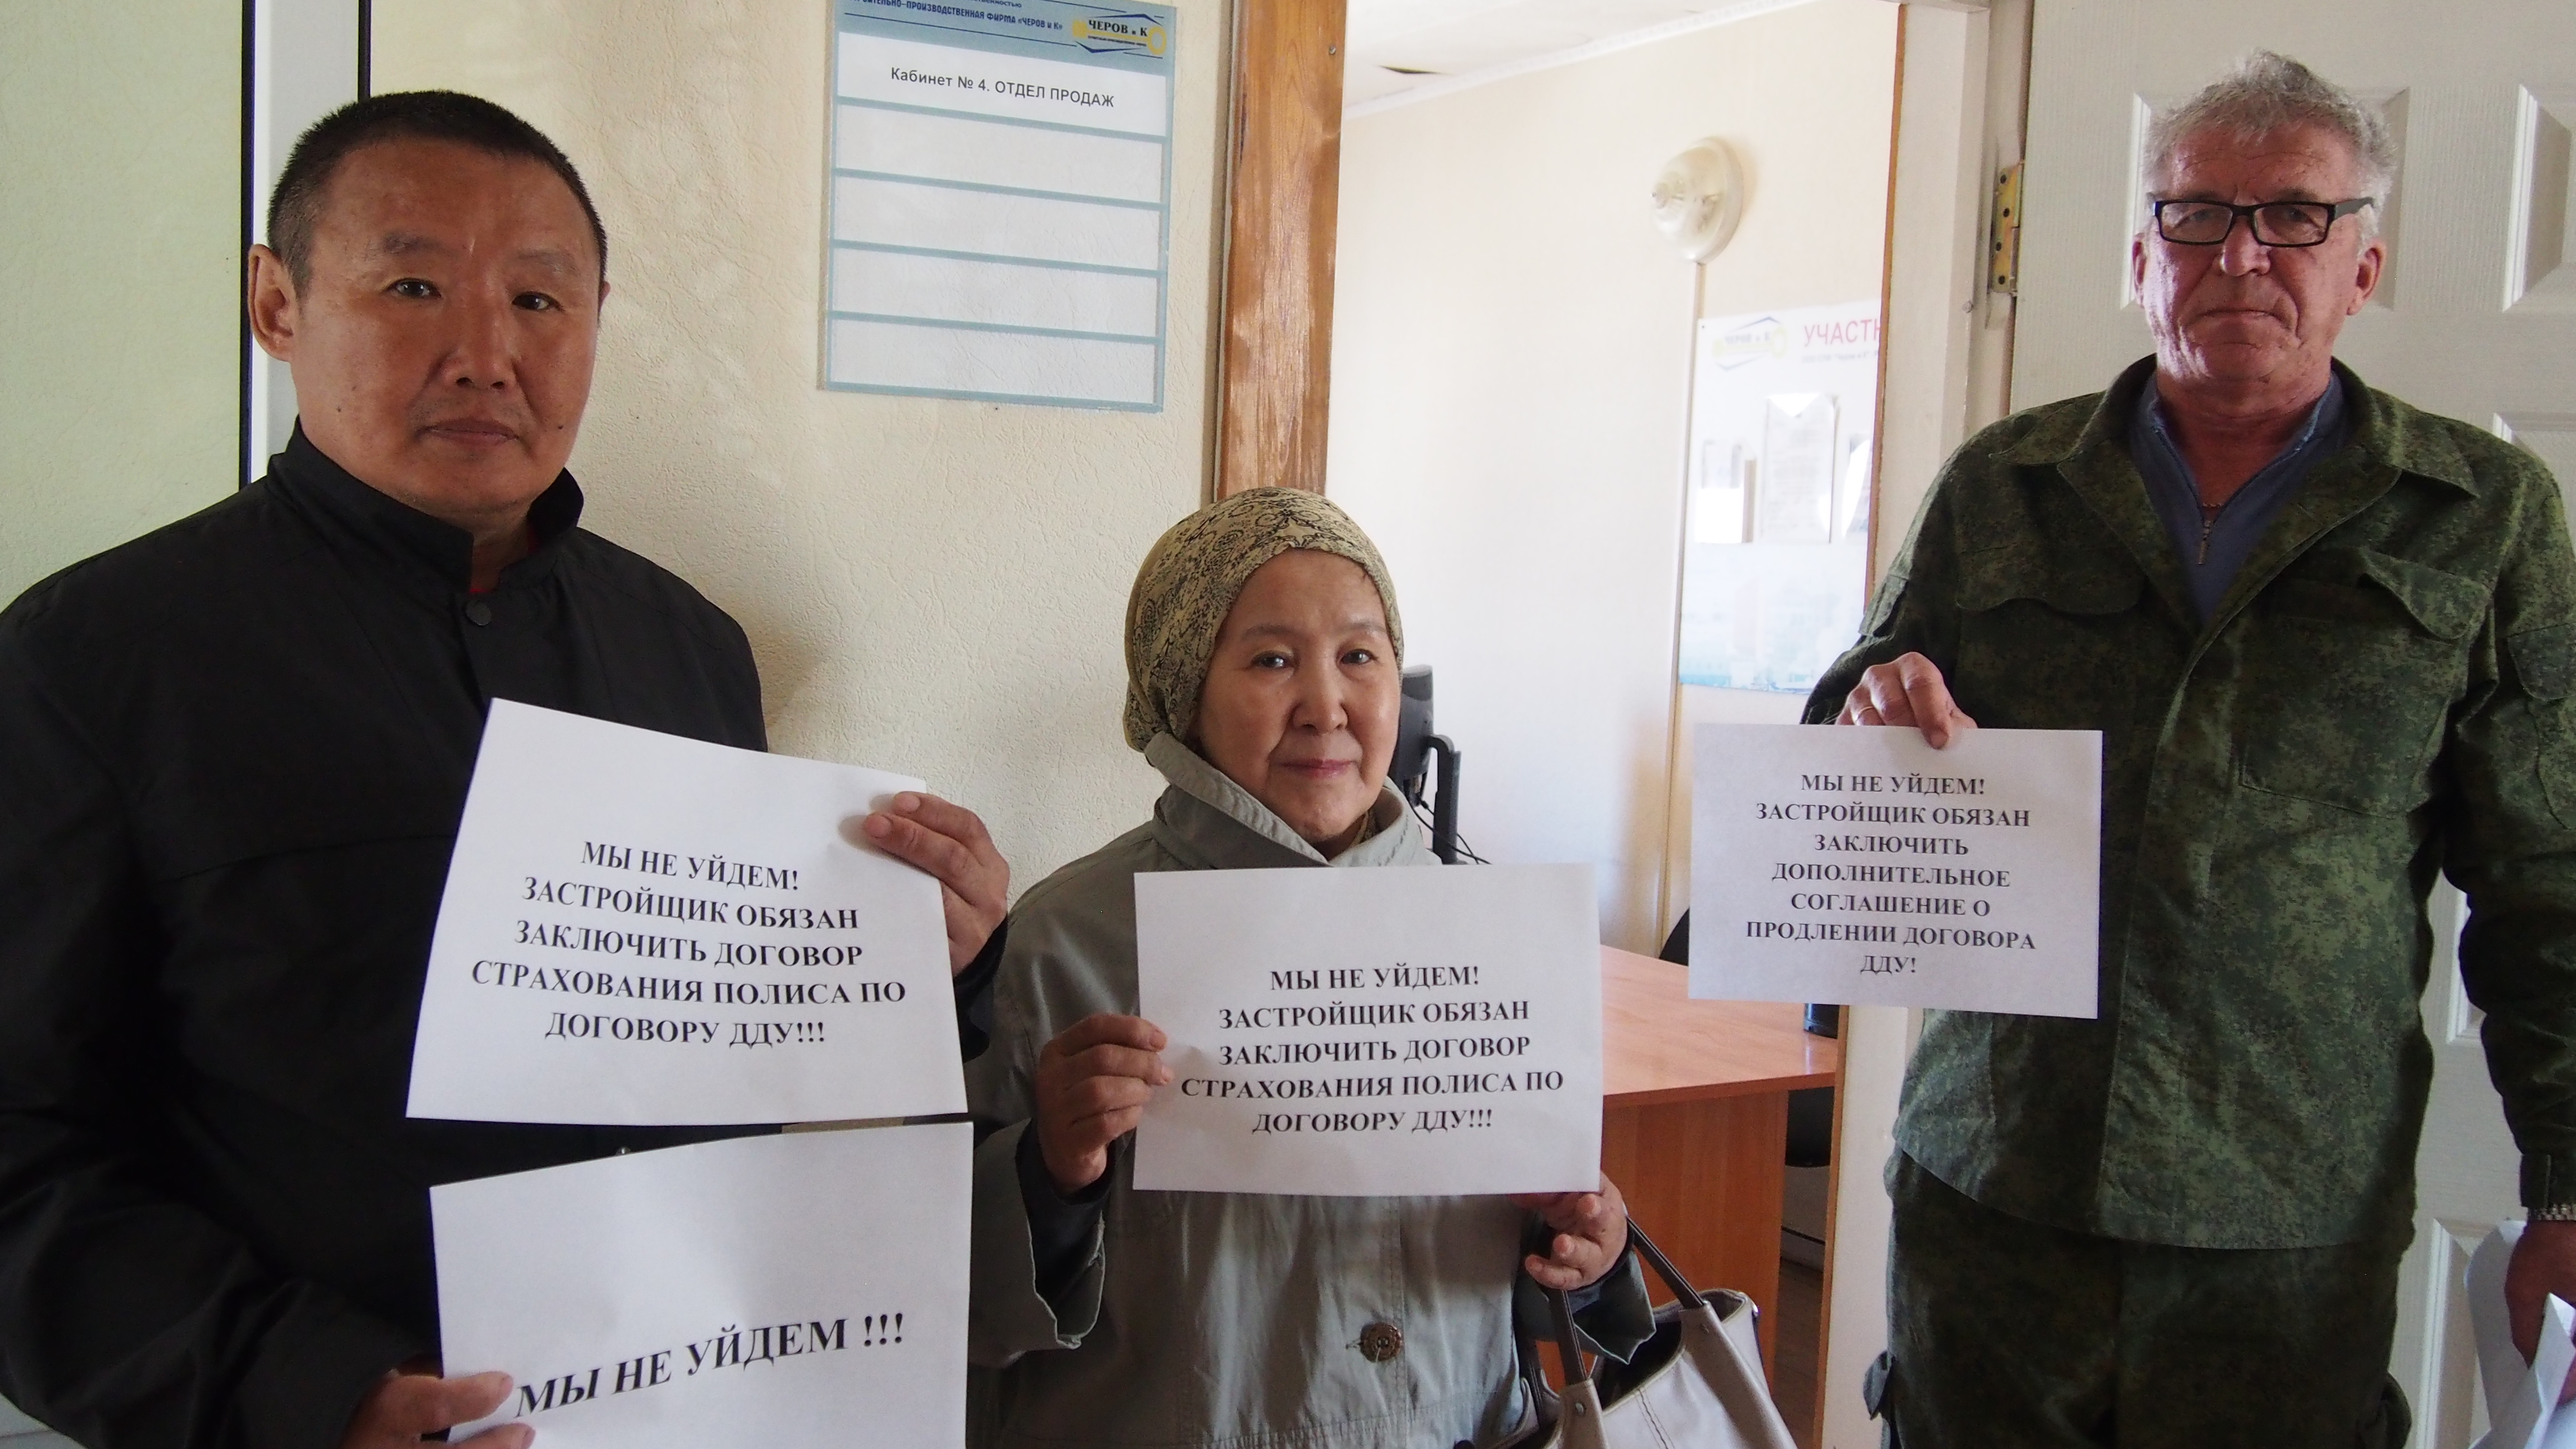 ПРОИЗВОДСТВЕННАЯ ФИРМА «ЧЕРОВ и К»
ЧЕРОВ и К
Кабинет № 4. ОТДЕЛ ПРОДАЖ
ЧЕРОВ и К
УЧАСТН
МЫ НЕ УЙДЕМ!
ЗАСТРОЙЩИК ОБЯЗАН
ЗАКЛЮЧИТЬ ДОГОВОР
СТРАХОВАНИЯ ПОЛИСА ПО
ДОГОВОРУ ДДУ!!!
МЫ НЕ УЙДЕМ !!!
МЫ НЕ УЙДЕМ!
ЗАСТРОЙЩИК ОБЯЗАН
ЗАКЛЮЧИТЬ ДОГОВОР
СТРАХОВАНИЯ ПОЛИСА ПО
ДОГОВОРУ ДДУ!!!
МЫ НЕ УЙДЕМ!
ЗАСТРОЙЩИК ОБЯЗАН
ЗАКЛЮЧИТЬ
ДОПОЛНИТЕЛЬНОЕ
СОГЛАШЕНИЕ О
ПРОДЛЕНИИ ДОГОВОРА
ДДУ!